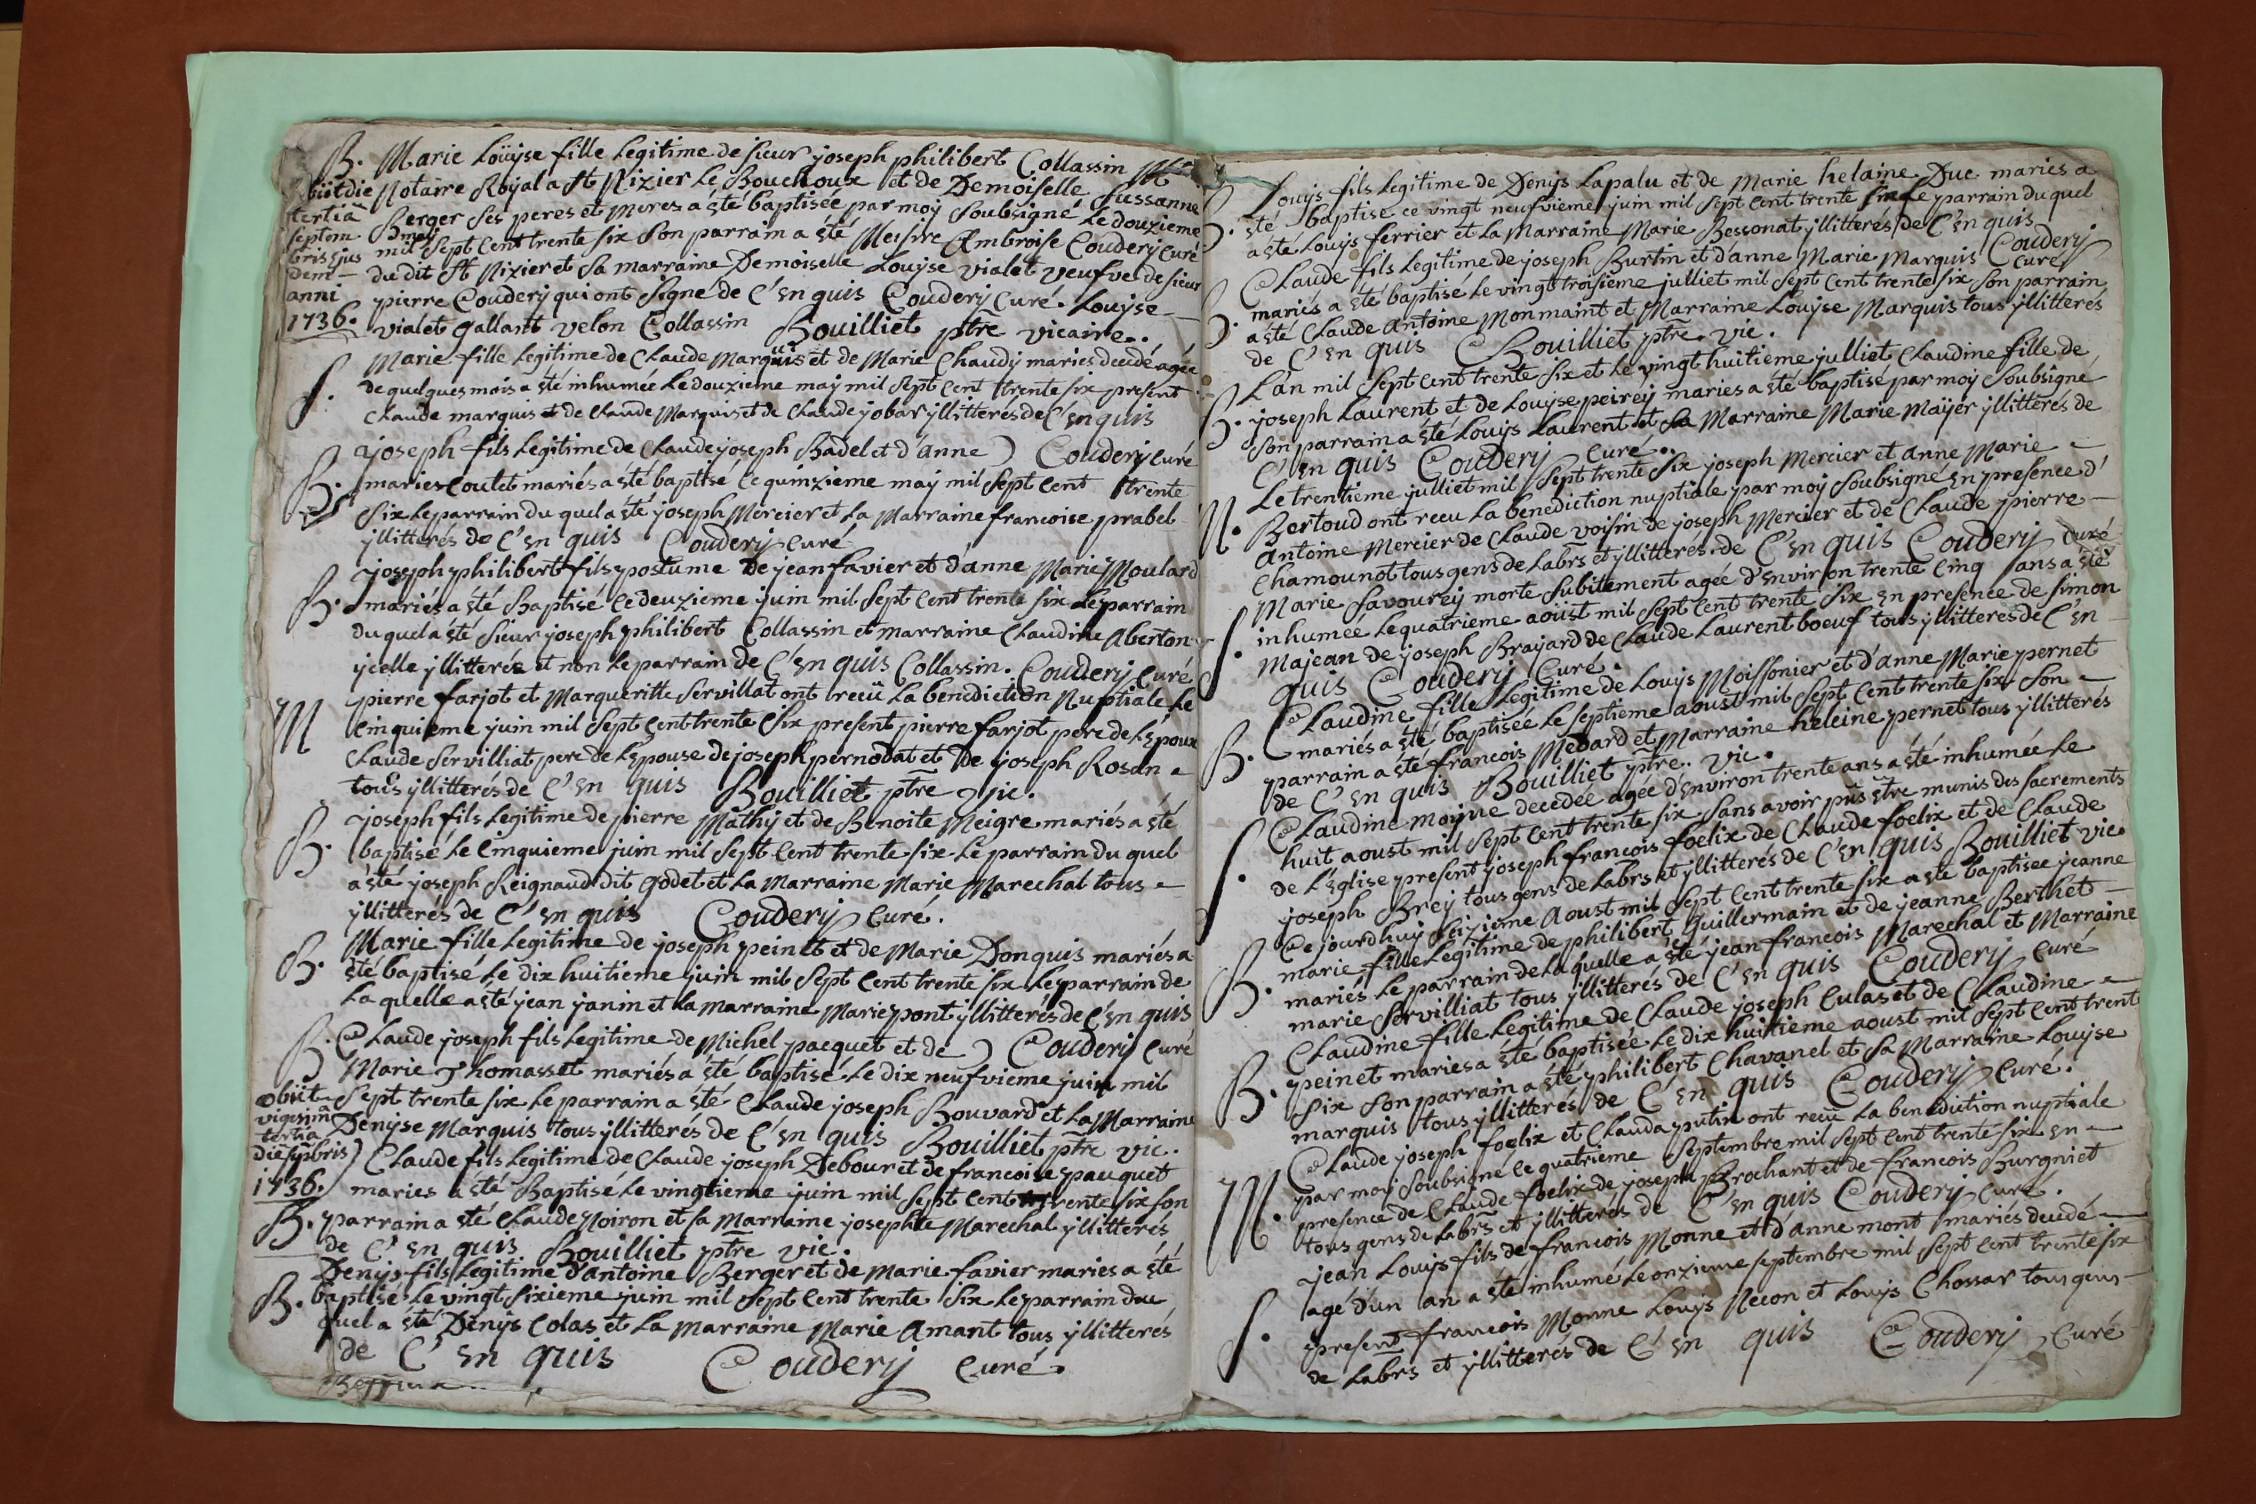 B. Marie Loüyse fille Legitime de sieur joseph philibert Collassin
obiit die Notaire Royal a St Nizier Le Bouchoux et de Demoiselle Sussanne
tertiâ Berger ses peres et meres a sté baptisée par moy soubsigné Le douzieme
septem may
bris ejus mil sept cent trente six son parrain a sté Messire Ambroise Coudery Curé
dem - du dit St Nizier et sa marraine Demoiselle Louyse vialet veufve de sieur
anni pierre Coudery qui ont signe de C'en quis Coudery Curé. Louyse
1736. vialet gallant velon Collassin Bouilliet ptre vicaire.
Marie fille Legitime de Claude Marquis et de Marie Chaudy maries decedé agée
S. de quelques mois a sté inhumée Le douzieme may mil sept cent trente six present
Claude marquis et de Claude Marquis et de Claude jobar yllitterés de C'en quis
joseph fils Legitime de Claude joseph Badel et d'anne ) Coudery Curé
B. maries Coulet mariés a sté baptisé Le quinzieme may mil sept cent trente
six Le parrain du quel a sté joseph Mercier et La Marraine francoise prabel
yllitterés de C'en quis Coudery Curé
joseph philibert fils postume de jean favier et d'anne Marie Moulard
B. mariés a sté Baptisé Le deuzieme juin mil sept cent trente six Le parrain
du quel a sté sieur joseph philibert Collassin et marraine Claudine Aberton
ycelle yllitterée et non Le parrain de C'en quis Collassin. Coudery Curé
pierre farjot et Margueritte Servillat ont receü La benediction Nuptiale Le
M Cinquieme juin mil sept Cent trente six present pierre farjot pere de L'Epoux
Claude Servilliat pere de L'epouse de joseph pernodat et de joseph Rosan
tous yllitterés de C'en quis Bouilliet ptre vic.
joseph fils Legitime de pierre Mathy et de Benoite Meigre mariés a sté
B. baptisé Le Cinquieme juin mil sept Cent trente six Le parrain du quel
a sté joseph Reignaud dit godet et La Marraine Marie Marechal tous
yllitterés de C'en quis Coudery Curé.
Marie fille Legitime de joseph peinet et de Marie Donquis mariés a
B. sté baptisé Le dix huitieme juin mil sept Cent trente six Le parrain de
La quelle a sté jean janin et La marraine Marie pont yllitterés de C'en quis
B. Claude joseph fils Legitime de Michel pacquet et de ) Coudery Curé
Marie Thomasset mariés a sté baptisé Le dix neufvieme juin mil
obiit sept trente six Le parrain a sté Claude joseph Bouvard et La Marraine
vigesima Denyse Marquis tous yllitterés de C'en quis Bouilliet ptre vic.
tertia
die 7bris Claude fils Legitime de Claude joseph Debour et de francoise pauquet
1736. maries a sté Baptisé Le vingtieme juin mil sept Cent trente six son
B. parrain a sté Claude Noiron et sa Marraine josephte Marechal yllitterés
de C'en quis Bouilliet ptre vic.
Denys fils Legitime d'antoine Berger et de Marie favier maries a sté
B. baptisé Le vingt sixieme juin mil sept Cent trente six Le parrain du
quel a sté Denys Colas et La marraine Marie Amant tous yllitterés
de C'en quis Coudery Curé.
Louys fils Legitime de Denys Lapalu et de Marie helaine Duc mariés a
B. sté baptisé ce vingt neufvieme juin mil sept cent trente six Le parrain du quel
a sté Louys ferrier et La Marraine Marie Bessonat yllitterés de C'en quis
Claude fils Legitime de joseph Burtin et d'anne Marie Marquis Coudery Curé
B. mariés a sté baptisé Le vingt troisieme julliet mil sept Cent trente six son parrain
a sté Claude Antoine Monmaint et Marraine Louyse Marquis tous yllitterés
de C'en quis Bouilliet ptre vic.
L'an mil sept cent trente six et Le vingt huitieme julliet Claudine fille de
B. joseph Laurent et de Louyse peirey maries a sté baptisé par moy soubsigné
son parrain a sté Louys Laurent et sa Marraine Marie Mayer yllitterés de
C'en quis Coudery Curé.
Le trentieme julliet mil sept trente six joseph Mercier et anne Marie
M. Bertoud ont receu La benediction nuptiale par moy soubsigné en presence d'
Antoine Mercier de Claude voisin de joseph Mercier et de Claude pierre
Chamounot tous gens de Labrs et yllitterés de C'en quis Coudery Curé
Marie Savourey morte subitement agée d'environ trente cinq ans a sté
S. inhumée Le quatrieme aoüst mil sept cent trente six en presence de simon
Majean de joseph Brayard de Claude Laurent boeuf tous yllitterés de C'en
quis Coudery Curé.
Claudine fille Legitime de Louys Moissonier et d'anne Marie pernet
B. mariés a sté baptisée Le septieme aoust mil sept Cent trente six son
parrain a sté francois Medard et Marraine heleine pernet tous yllitterés
de C'en quis Bouilliet ptre. vic.
Claudine moyne decedée agée d'environ trente ans a sté inhumée Le
S. huit aoust mil sept cent trente six sans avoir pus estre munis des sacrements
de L'Eglise present joseph francois foelix de Claude foelix et de Claude
joseph Brey tous gens de Labrs et yllitterés de C'en quis Bouilliet vic.
Ce jourd'huy seizieme Aoust mil sept cent trente six a sté baptisee jeanne
B. marie fille Legitime de philibert Guillermain et de jeanne Berthet
mariés Le parrain de La quelle a sté jean francois Marechal et Marraine
marie Servilliat tous yllitterés de C'en quis Coudery Curé
Claudine fille Legitime de Claude joseph Culas et de Claudine
B. peinet maries a sté baptisée Le dix huitieme aoust mil sept cent trente
six son parrain a sté philibert Chavanel et sa Marraine Louyse
marquis tous yllitterés de C'en quis Coudery Curé.
Claude joseph foelix et Clauda putin ont receu La benediction nuptiale
M. par moy soubsigné Le quatrieme septembre mil sept cent trente six en
presence de Claude foelix de joseph Brochant et de francois Burgniet
tous gens de Labrs et yllitterés de C'en quis Coudery Curé.
jean Louys fils de francois Monne et d'anne mont mariés decedé
S. agé d'un an a sté inhumé Le onzieme septembre mil sept cent trente six
present francois Monne Louys Necon et Louys Chossar tous gens
de Labrs et yllitterés de C'en quis Coudery Curé